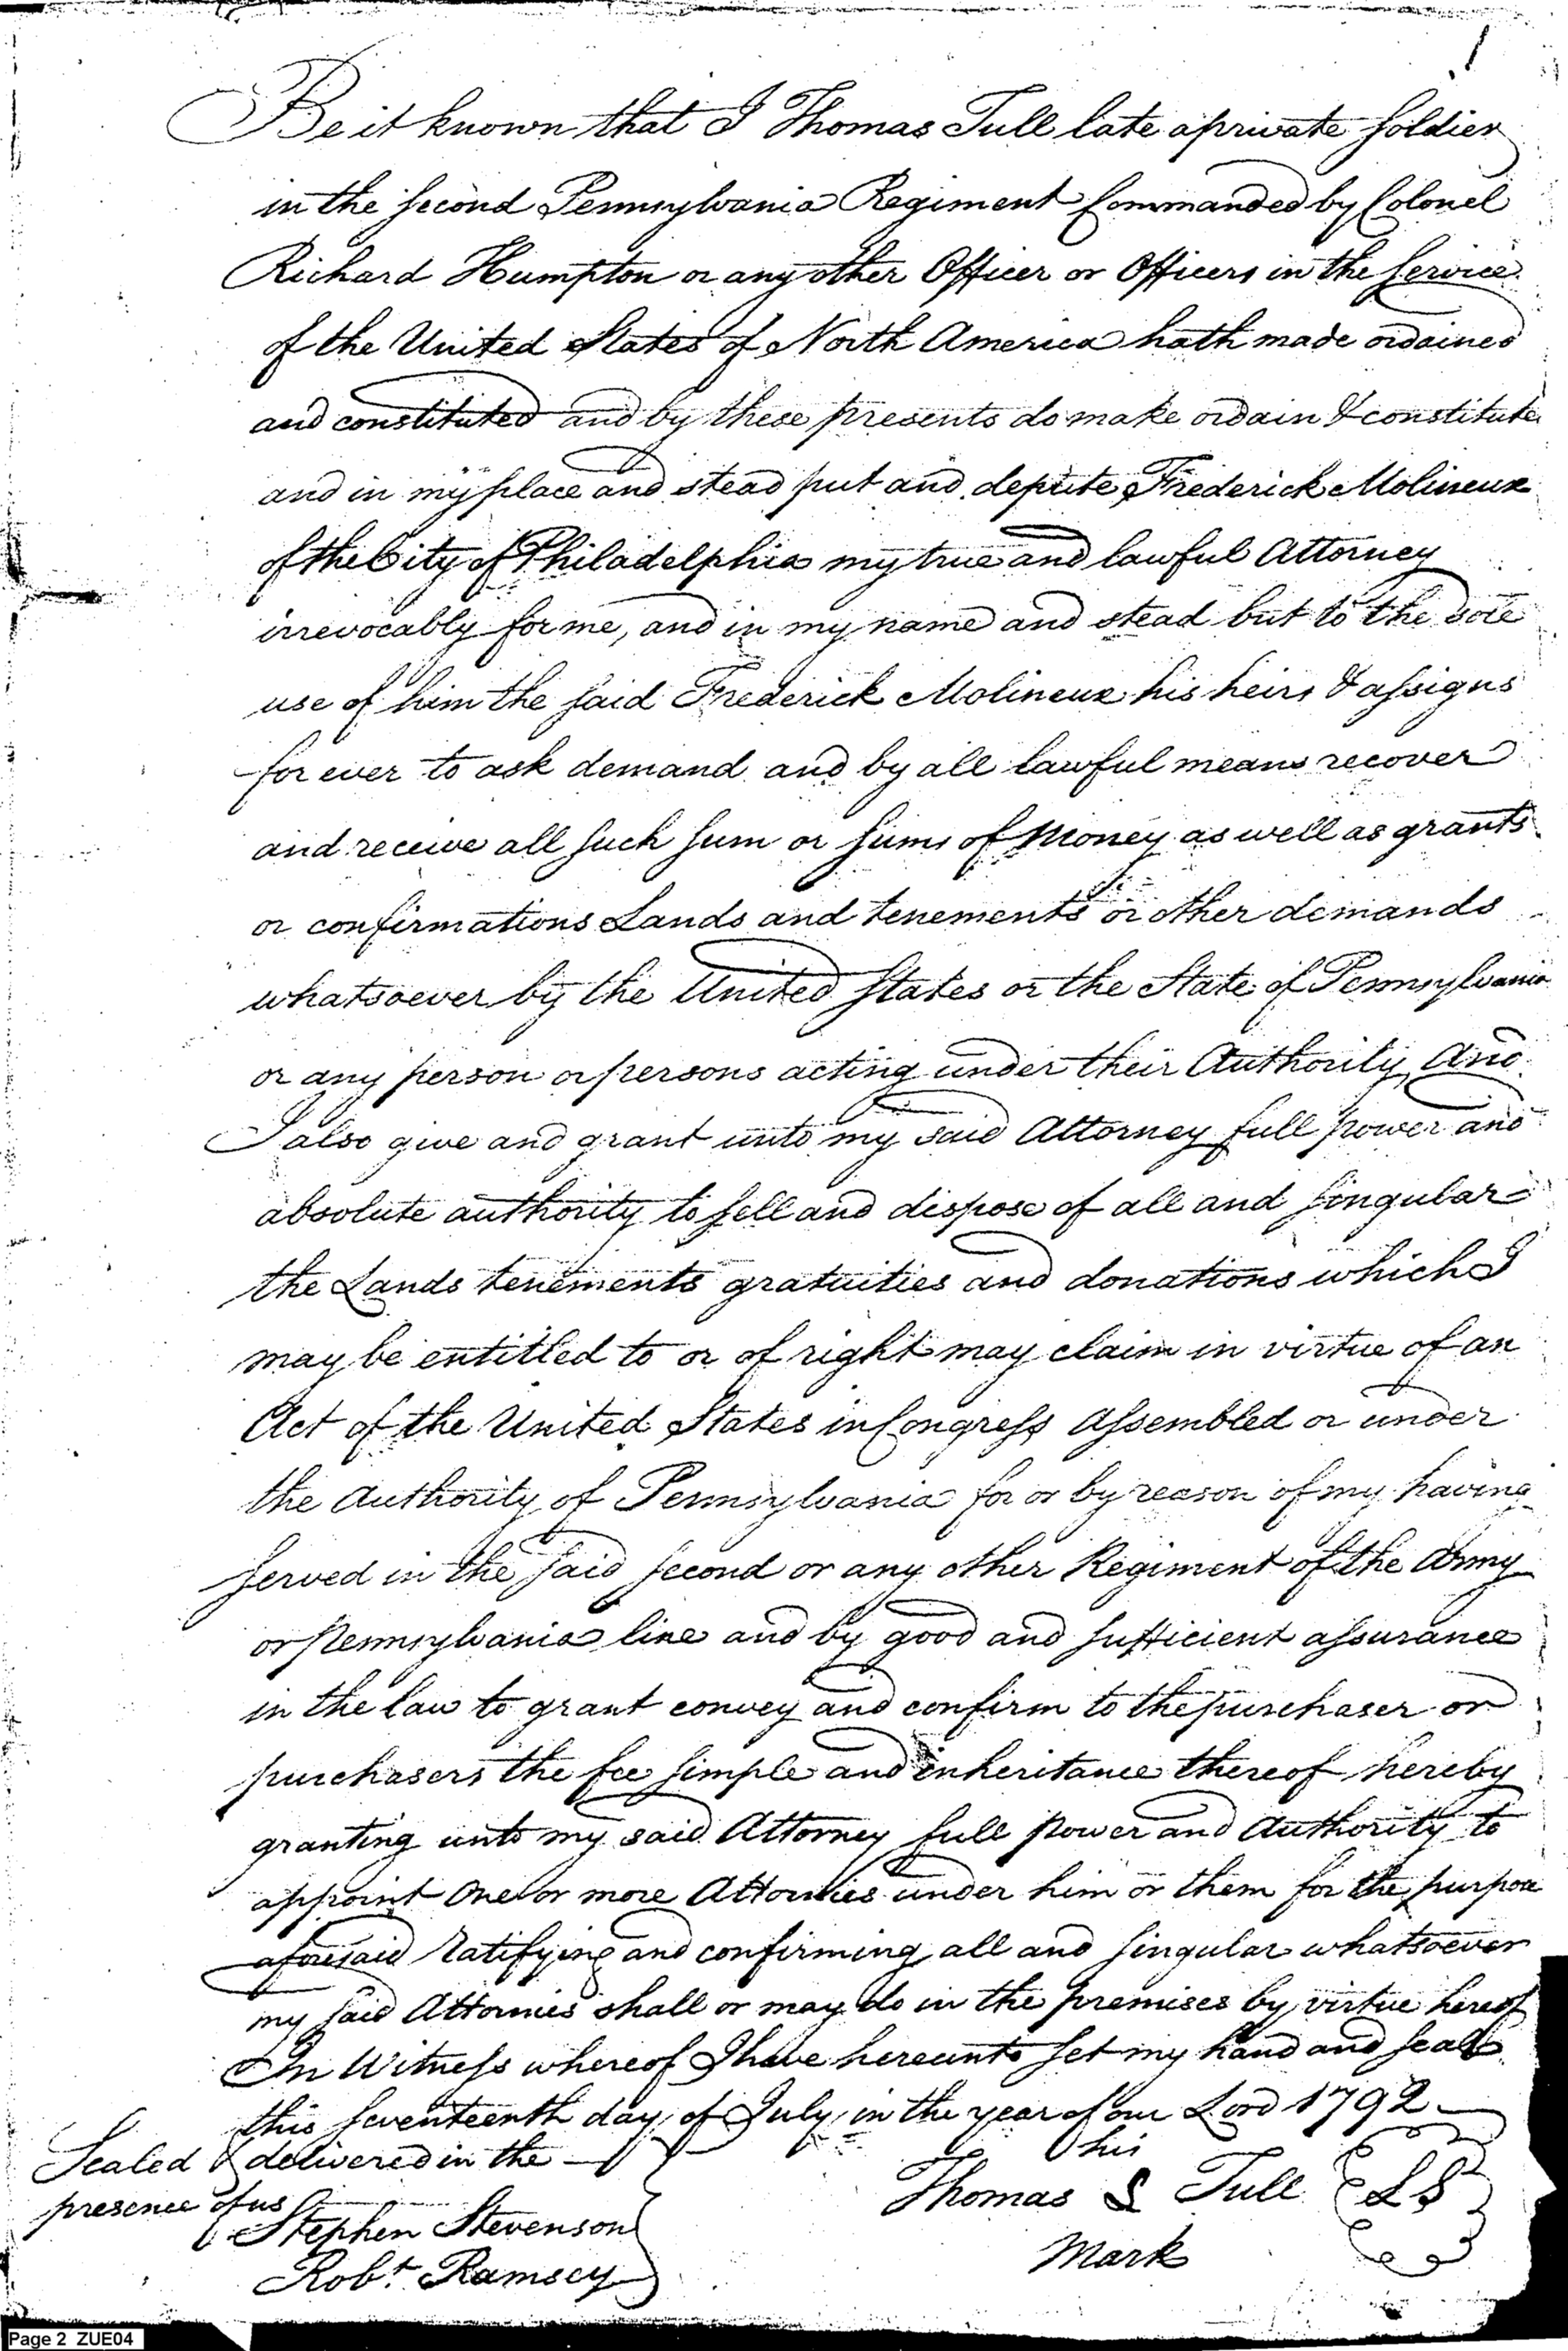 Be it known that I Thomas Tull late a private soldier
in the second Pennsylvania Regiment Commanded by Colonel
Richard Humpton or any other Officer or Officers in the service
of the United States of North America hath made ordained
and constituted and by these presents do make ordain & constitute
and in my place and stead put and depute Frederick Molineux
of the City of Philadelphia my true and lawful Attorney
irrevocably for me, and in my name and stead but to the sole
use of him the said Frederick Molineux his heirs & assigns
for ever to ask demand and by all lawful means recover
and receive all such sum or sums of Money as well as grants
or confirmations Lands and tenements or other demands
whatsoever by the United States or the State of Pennsylvania
or any person or persons acting under their Authority, And
I also give and grant unto my said Attorney full power and
absolute authority to sell and dispose of all and singular
the Lands tenements gratuities and donations which I
may be entitled to or of right may claim in virtue of an
Act of the United States in Congress Assembled or under
the Authority of Pennsylvania for or by reason of my having
served in the said second or any other Regiment of the Army
or Pennsylvania line and by good and sufficient assurance
in the law to grant convey and confirm to the purchaser or
purchasers the fee simple and inheritance thereof hereby
granting unto my said Attorney full power and Authority to
appoint One or more Attornies under him or them for the purpose
aforesaid ratifying and confirming all and singular whatsoever
my said Attornies shall or may do in the premises by virtue hereof
In Witness whereof I have hereunto set my hand and seal
this seventeenth day of July in the year of our Lord 1792
Sealed & delivered in the
presence of us
Stephen Stevenson
Robt. Ramsey
his
Thomas S Tull LS
Mark
Page 2 ZUE04